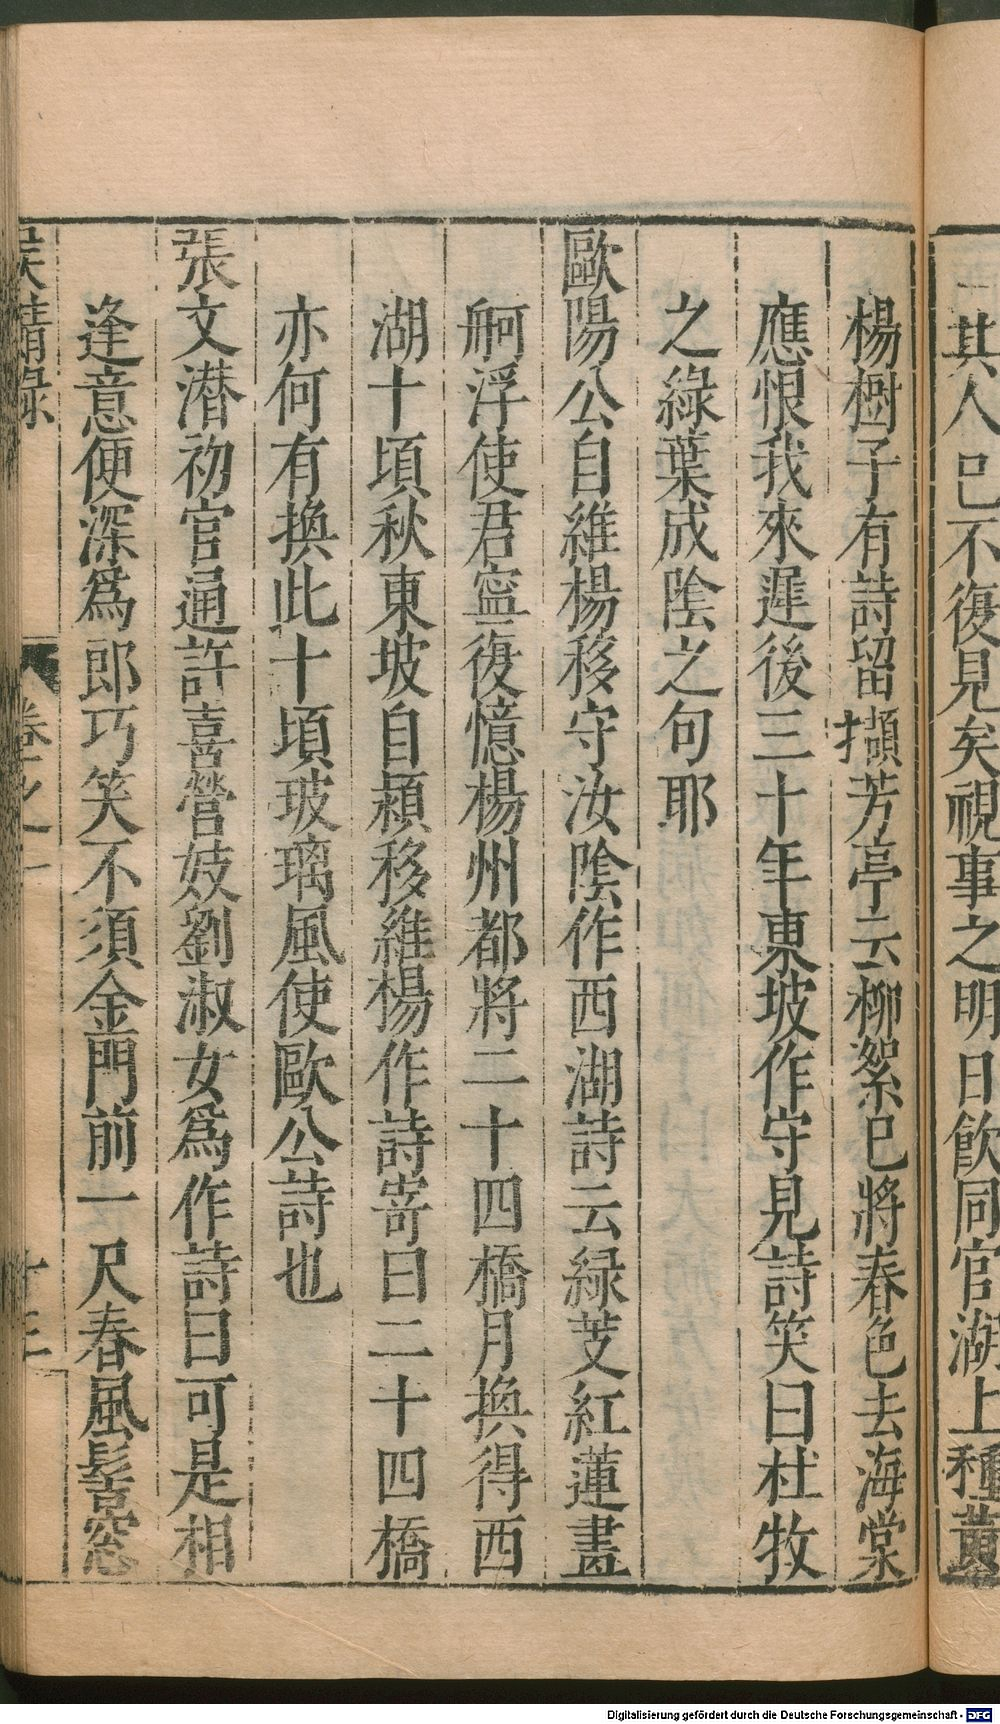 其人已不復見矣視事之明日飲同官湖上種黃
楊樹子有詩留擷芳亭云柳絮已將春色去海棠
應恨我來遲後三十年東坡作守見詩笑曰杜牧
之綠葉成陰之句耶
歐陽公自維楊移守汝陰作西湖詩云綠芰紅蓮畫
舸浮使君寧復憶楊州都將二十四橋月換得西
湖十頃秋東坡自潁移維楊作詩寄曰二十四橋
亦何有換此十頃玻璃風使歐公詩也
張文潛初官通許喜營妓劉淑女為作詩曰可是相
逢意便深為郎巧笑不須金門前一尺春風髻窓
侯鯖錄 卷之一 十三
Digitalisierung gefördert durch die Deutsche Forschungsgemeinschaft - DFG